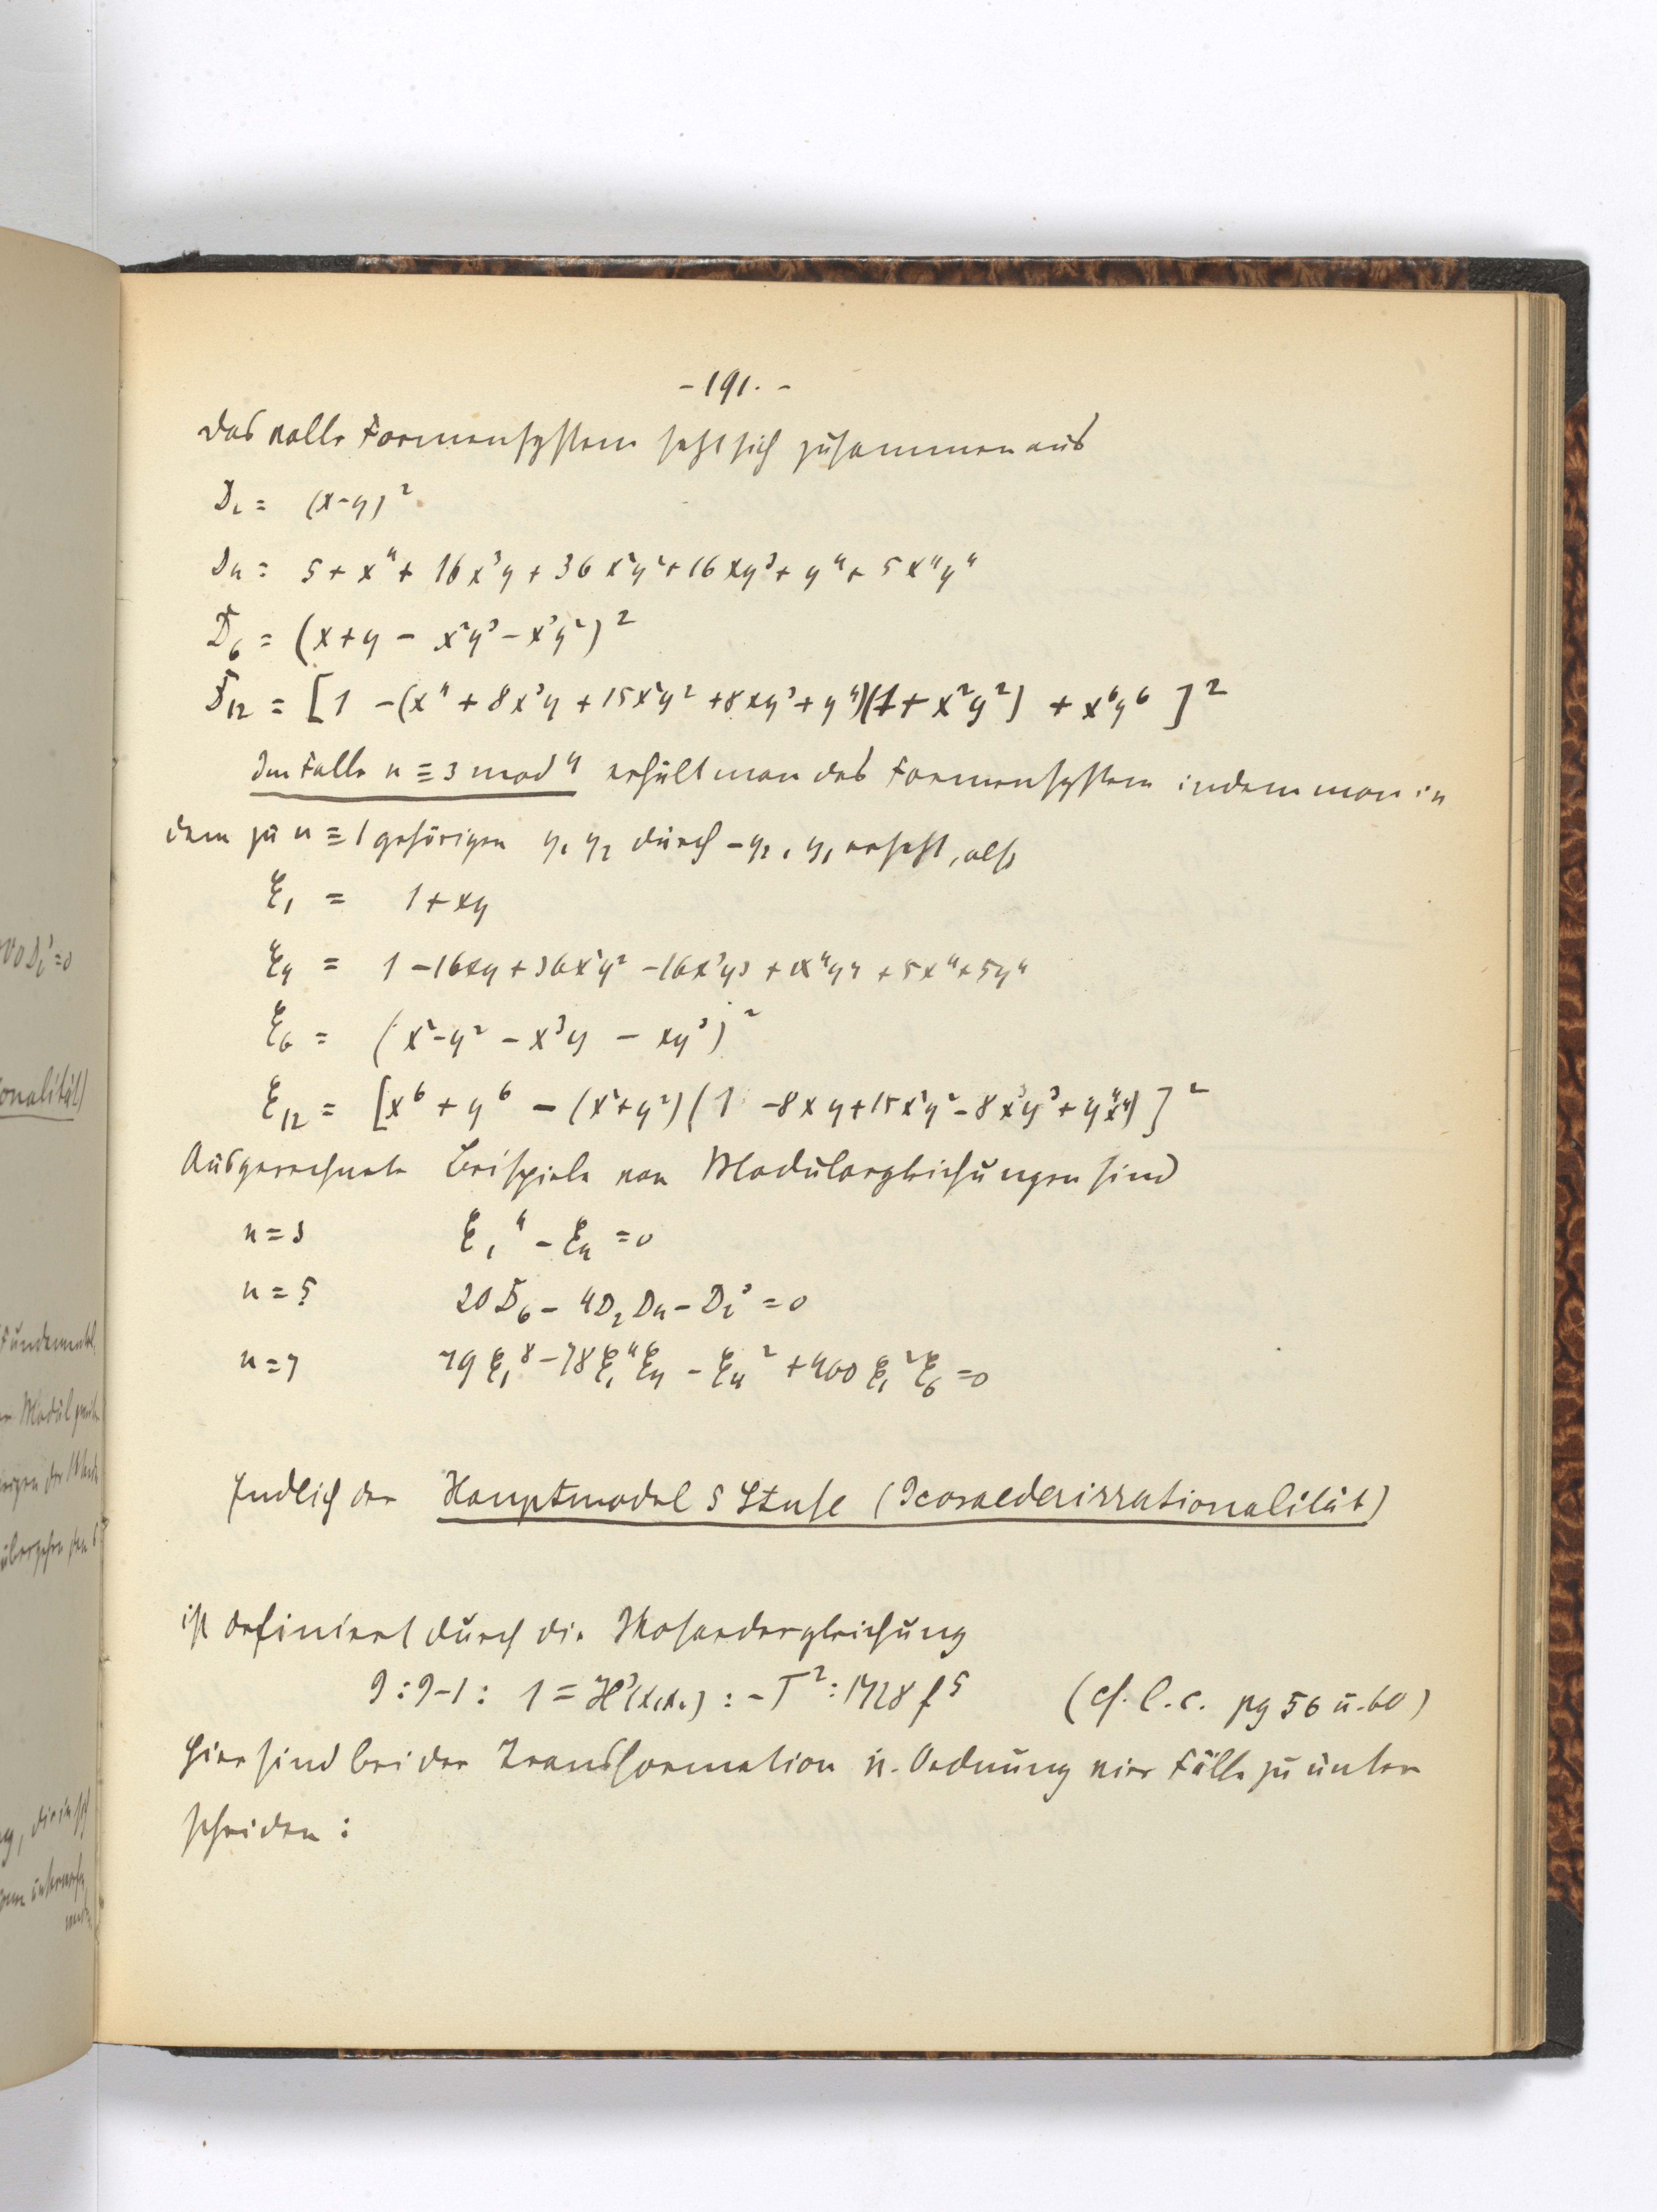 - 191. -
Das volle Formensystem setzt sich zusammen aus
D₂ = (x-y)²
D₄ = 5 + x⁴ + 16x³y + 36x²y² + 16xy³ + y⁴ + 5x⁴y⁴
D₆ = (x+y - x²y³ - x³y²)²
D₁₂ = [1 - (x⁴ + 8x³y + 15x²y² + 8xy³ + y⁴)(1 + x²y²) + x⁶y⁶]²
Im Falle n ≡ 3 mod 4 erhält man das Formensystem indem man in
dem zu n ≡ 1 gehörigen y₁ y₂ durch -y₂, y₁ ersetzt, also
ξ₁ = 1 + xy
ξ₄ = 1 - 16xy + 36x²y² - 16x³y³ + x⁴y⁴ + 5x⁴ + 5y⁴
ξ₆ = (x² - y² - x³y - xy³)²
ξ₁₂ = [x⁶ + y⁶ - (x² + y²)(1 - 8xy + 15x²y² - 8x³y³ + y⁴x⁴)]²
Ausgerechnete Beispiele von Modulargleichungen sind
n = 3 ξ₁⁴ - ξ₄ = 0
n = 5 20D₆ - 4D₂D₄ - D₂³ = 0
n = 7 79ξ₁⁸ - 78ξ₁⁴ξ₄ - ξ₄² + 400ξ₁²ξ₆ = 0
Endlich der Hauptmodul 5 Stufe (Icosaederirrationalität)
ist definiert durch die Ikosaedergleichung
J : J-1 : 1 = H³(x₁x₂) : -T² : 1728 f⁵ (cf. l. c. pg 56 u. 60)
Hier sind bei der Transformation n. Ordnung vier Fälle zu unter
scheiden :
V0D₂³=0
onalität)